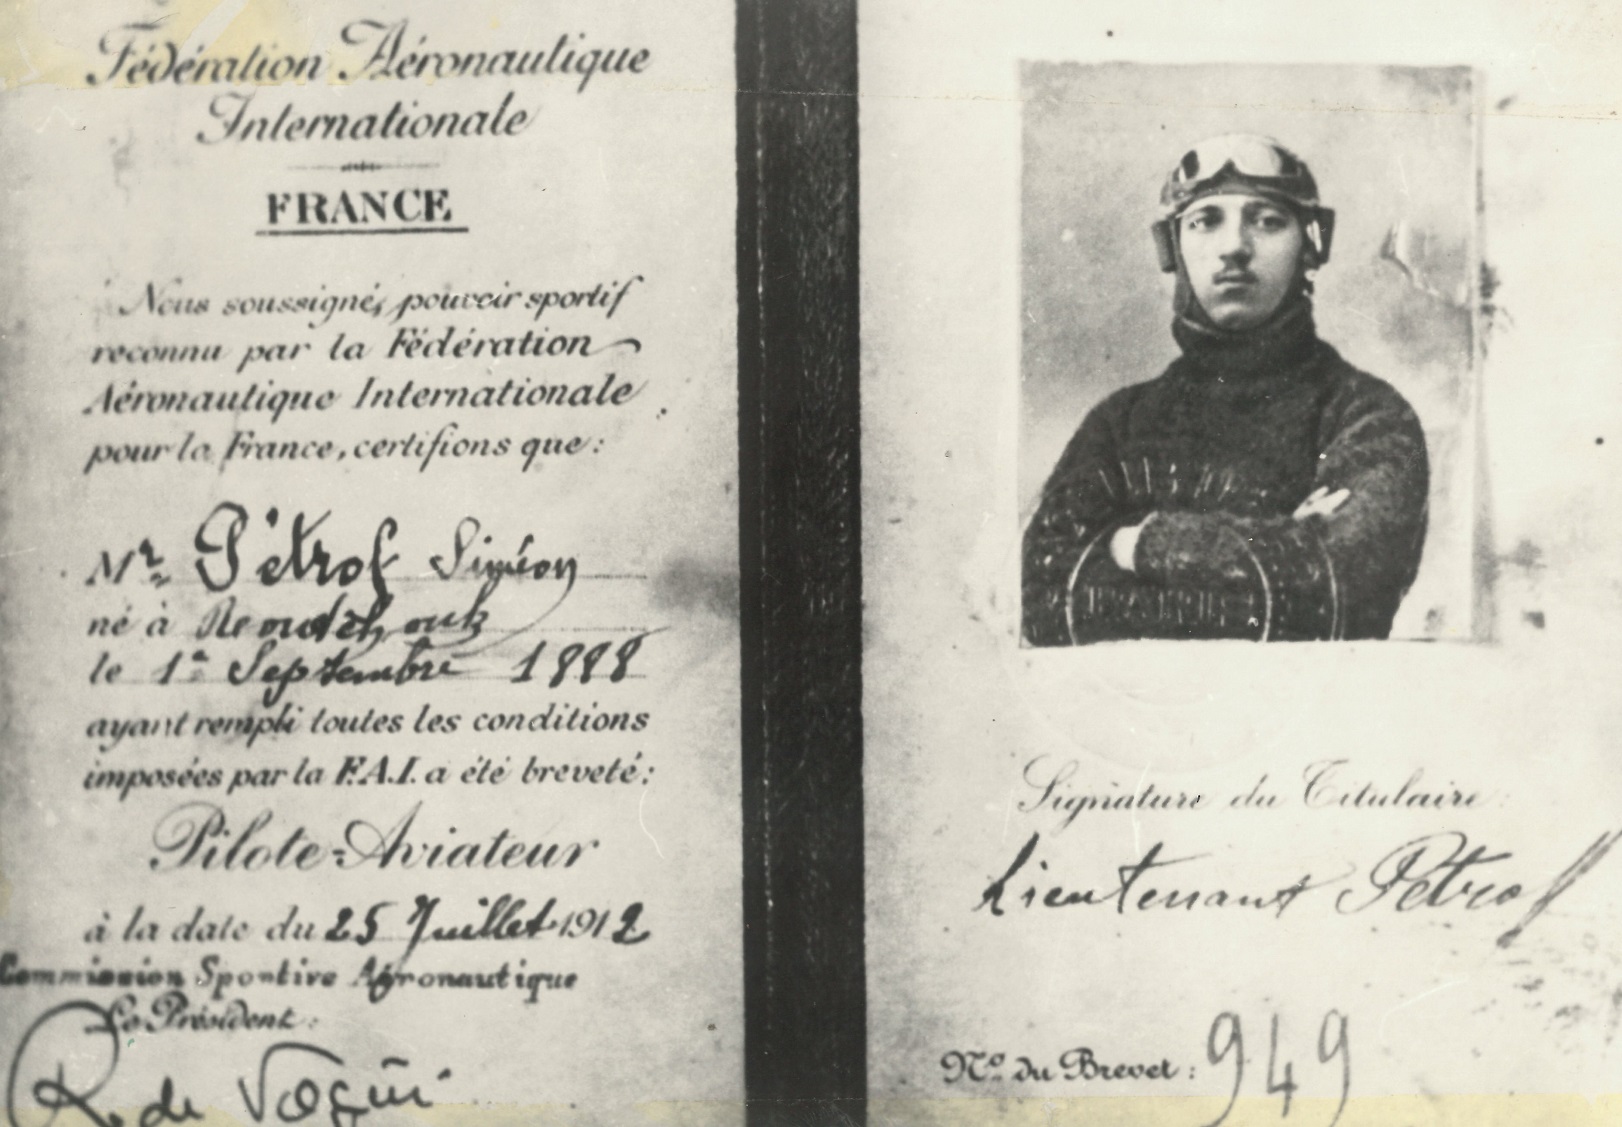 Fédération Aéronautique
Internationale
FRANCE
Nous soussignés, pouvoir sportif
reconnu par la Fédération
Aéronautique Internationale
pour la France, certifions que:
Mr. Pétrof Siméon
né à Roudtchouk
le 1er Septembre 1888
ayant rempli toutes les conditions
imposées par la F.A.I. a été breveté:
Pilote-Aviateur
à la date du 25 Juillet 1912
Commission Sportive Aéronautique
Le Président:
R. de Vogüé
Signature du Titulaire:
Lieutenant Pétroff
No. du Brevet: 949